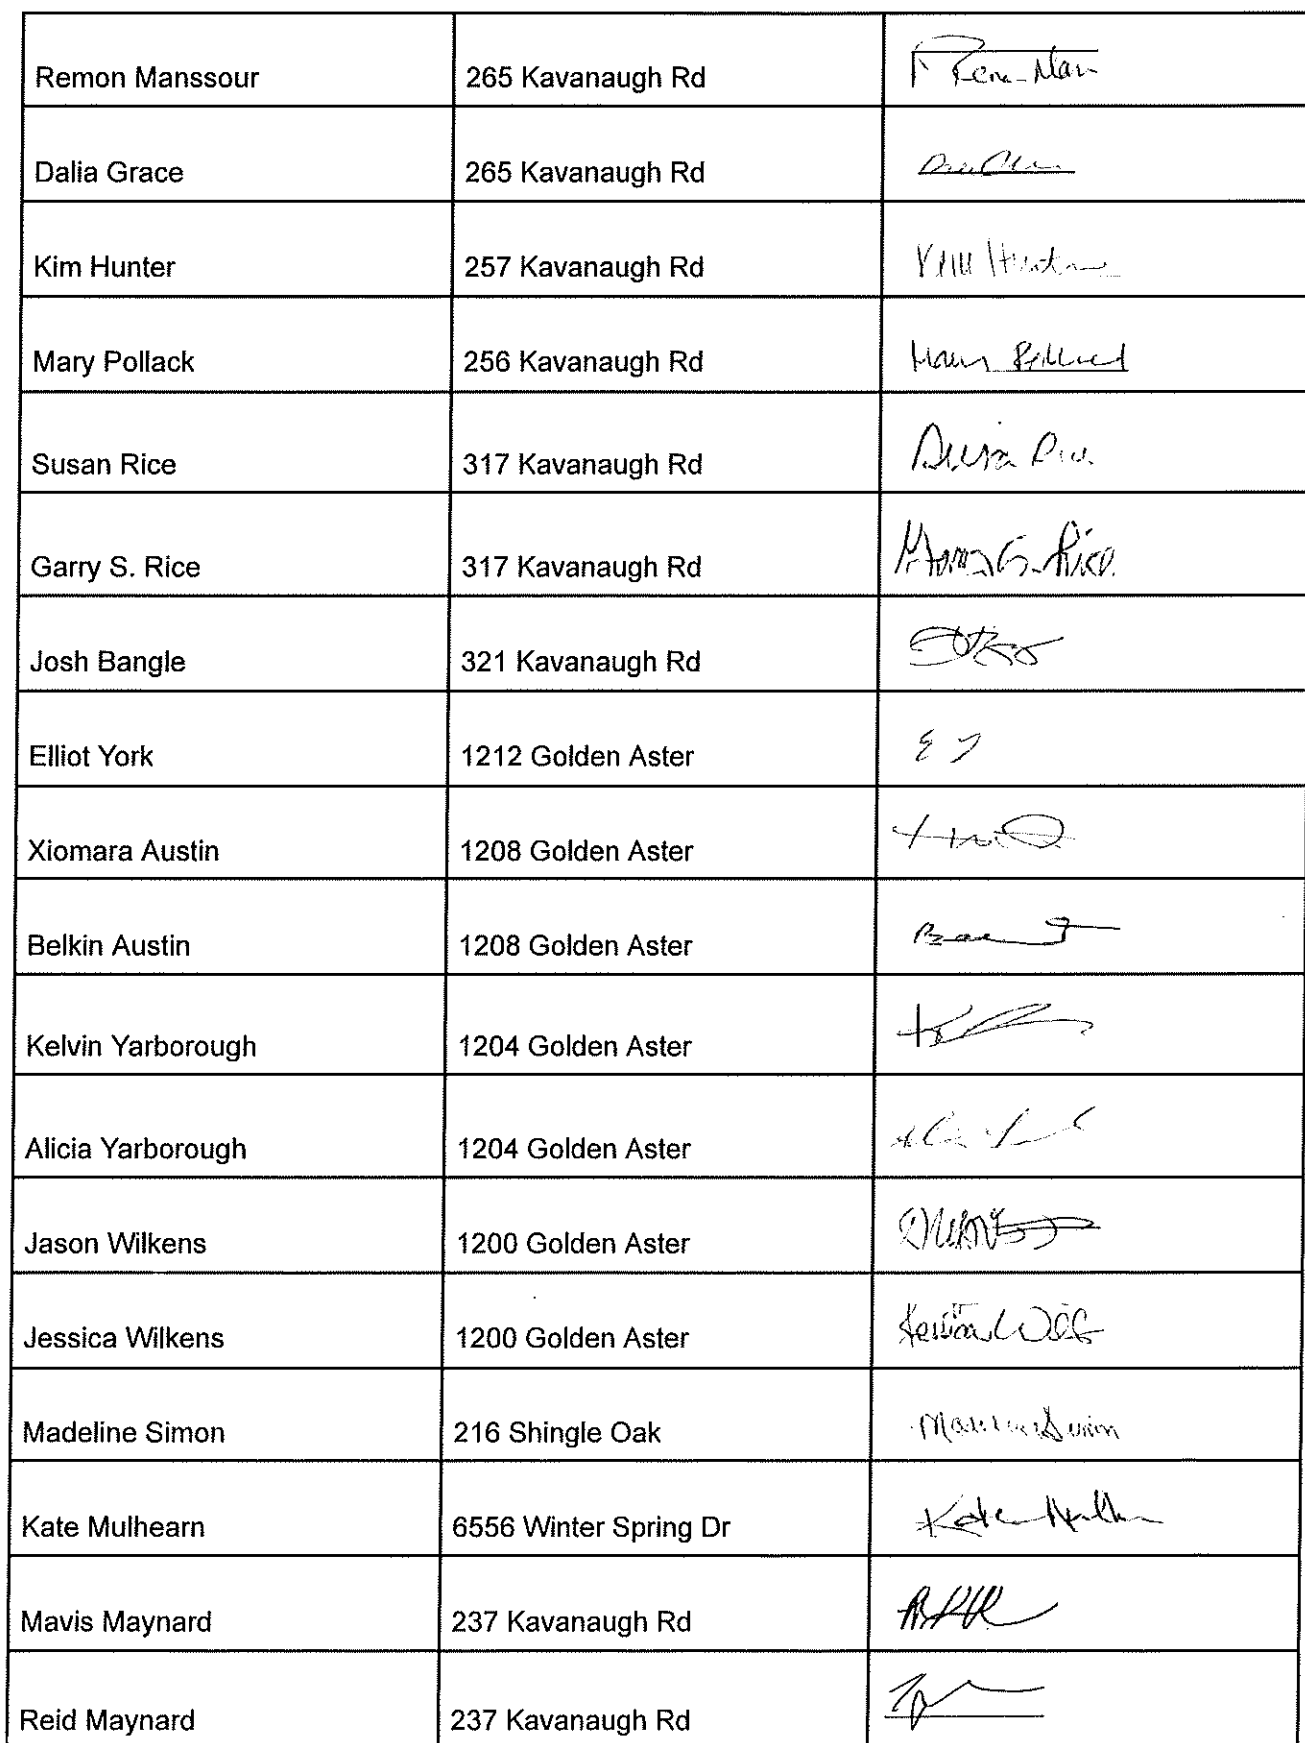 Remon Manssour 265 Kavanaugh Rd
Dalia Grace 265 Kavanaugh Rd
Kim Hunter 257 Kavanaugh Rd Kim Hunter
Mary Pollack 256 Kavanaugh Rd Mary Pollack
Susan Rice 317 Kavanaugh Rd Susan Rice
Garry S. Rice 317 Kavanaugh Rd Garry S. Rice
Josh Bangle 321 Kavanaugh Rd
Elliot York 1212 Golden Aster E Y
Xiomara Austin 1208 Golden Aster
Belkin Austin 1208 Golden Aster
Kelvin Yarborough 1204 Golden Aster
Alicia Yarborough 1204 Golden Aster
Jason Wilkens 1200 Golden Aster
Jessica Wilkens 1200 Golden Aster
Madeline Simon 216 Shingle Oak Madeline Simon
Kate Mulhearn 6556 Winter Spring Dr Kate
Mavis Maynard 237 Kavanaugh Rd
Reid Maynard 237 Kavanaugh Rd